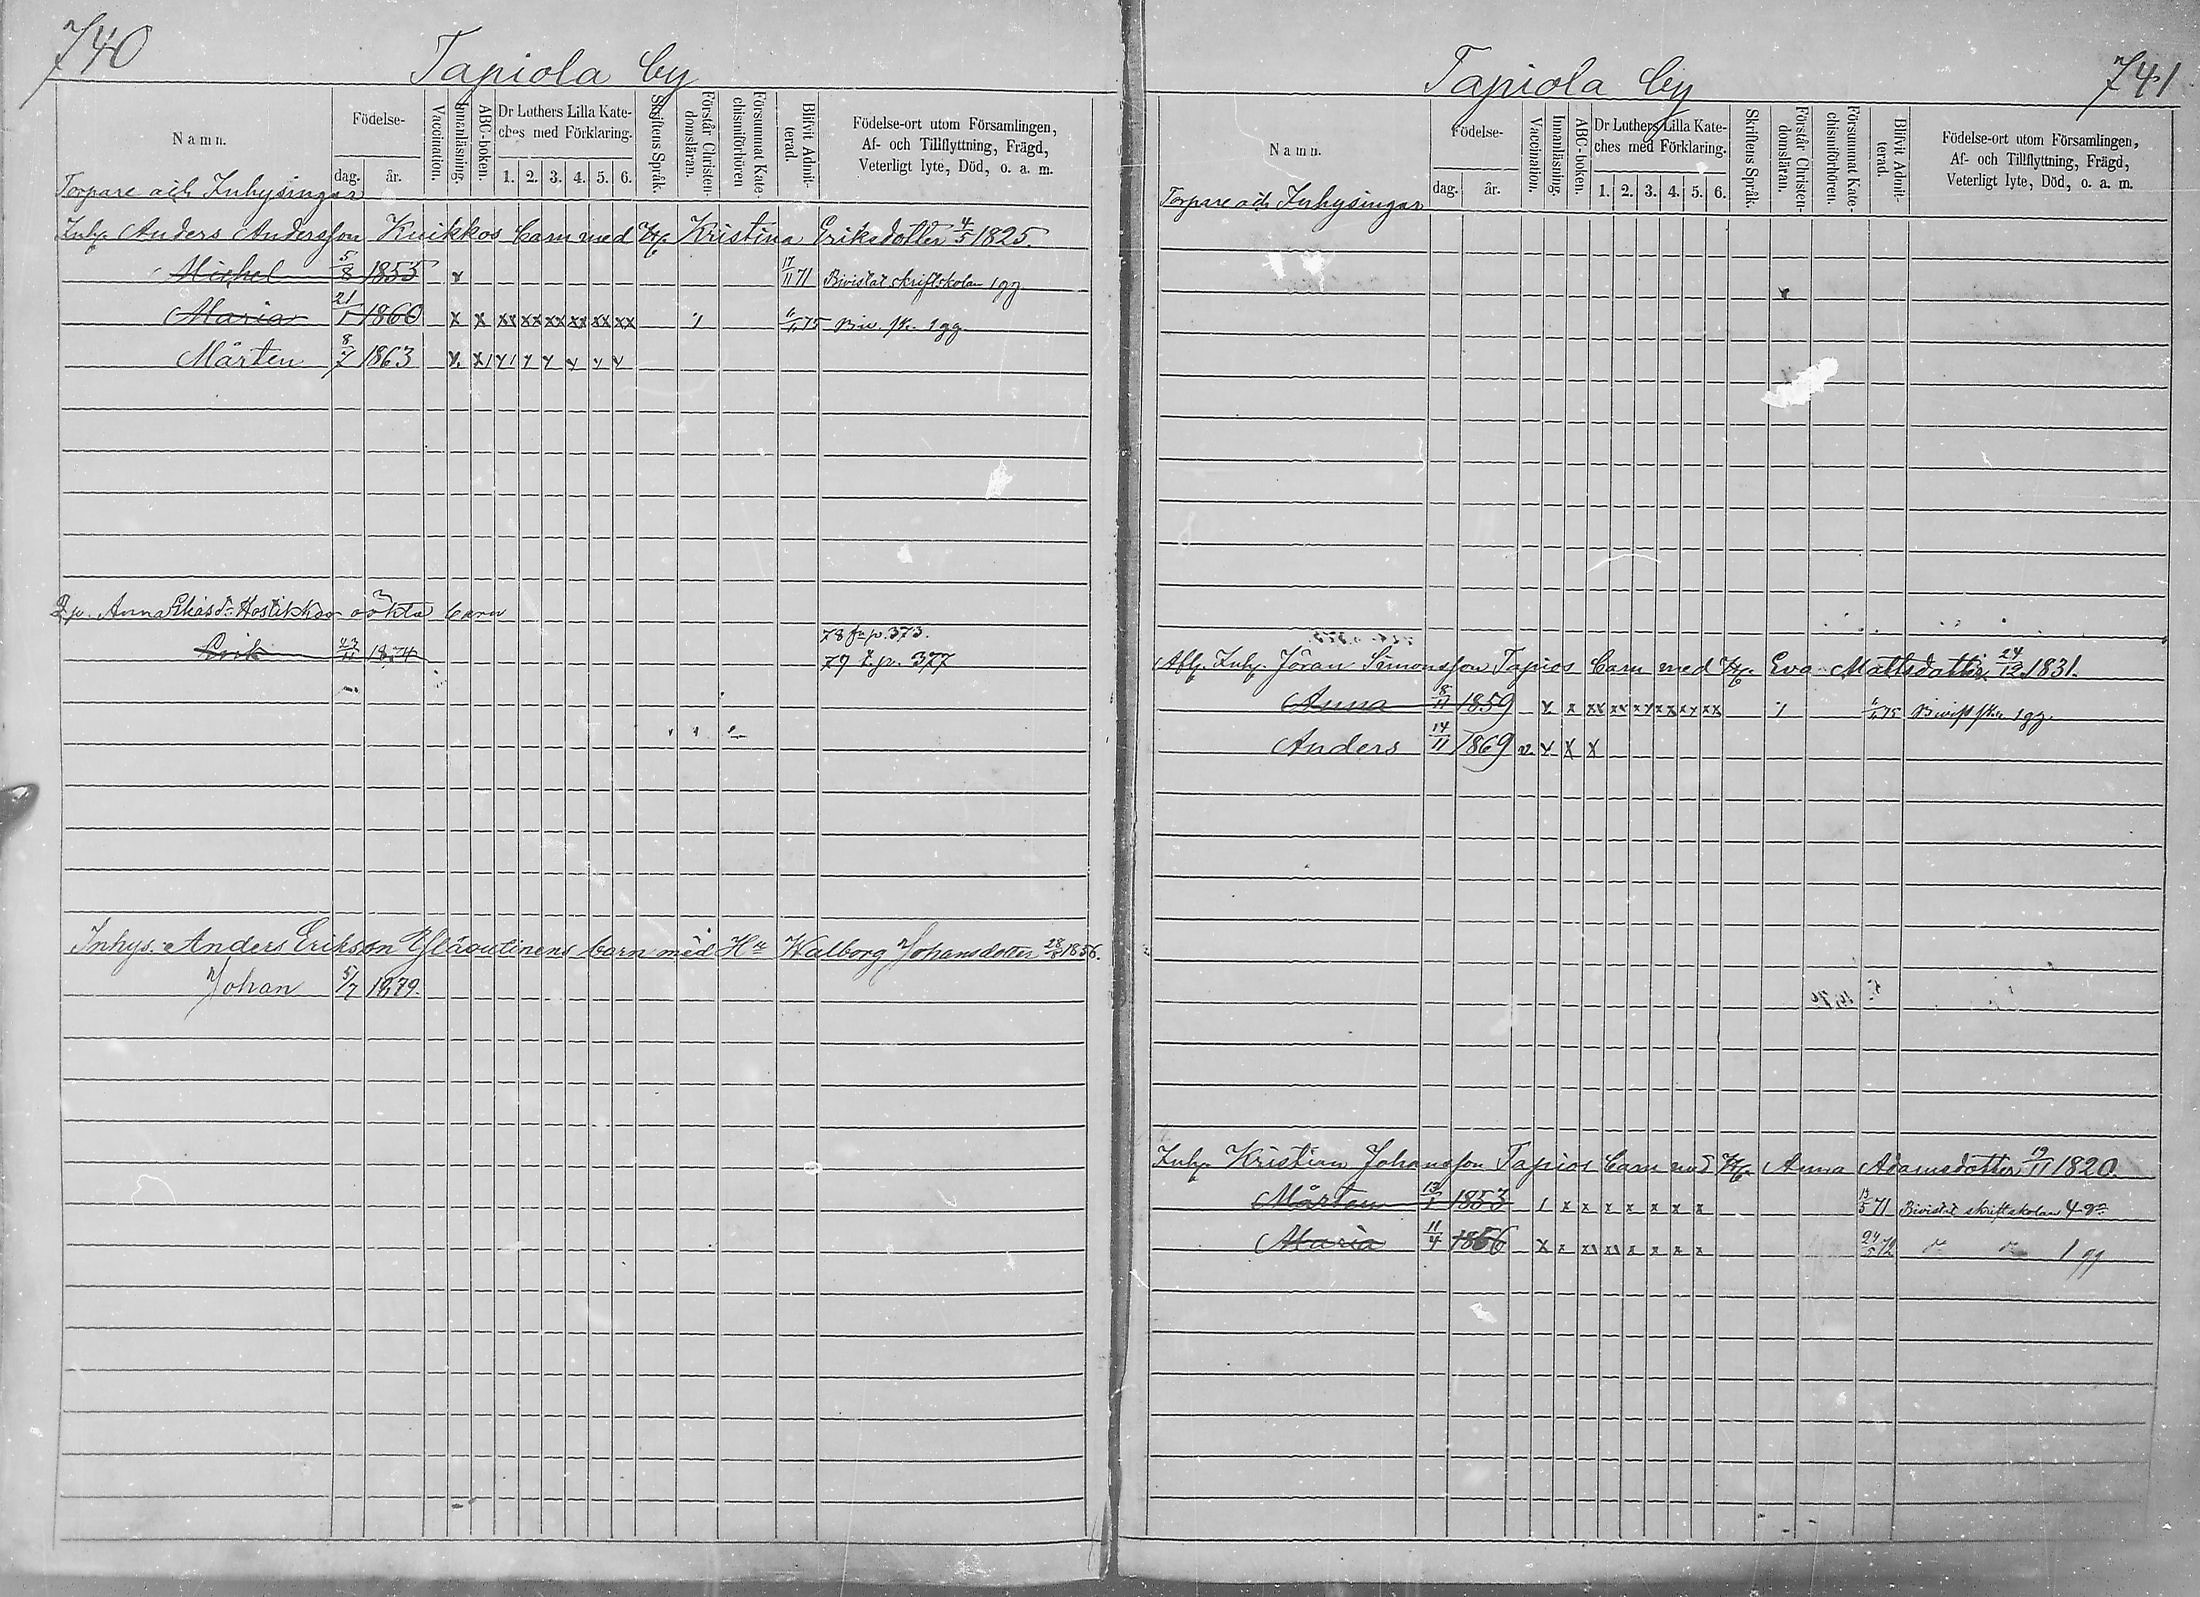 740
Tapiola by
Namn.
Födelse-
dag.
år.
Vaccination.
Innanläsning.
ABC-boken.
Dr Luthers Lilla Kate-
ches med Förklaring.
1. 2. 3. 4. 5. 6.
Skriftens Språk.
Förstår Christen-
domsläran.
Försummat Kate-
chismiförhören
Blifvit Admit-
terad.
Födelse-ort utom Församlingen,
Af- och Tillflyttning, Frägd,
Veterligt lyte, Död, o. a. m.
Torpare och Inhysingar
Inh. Anders Andersson Knikkos barn med H. Kristina Eriksdotter 4/5 1825.
Michel 5/8 1855 x 17/11 71 Bivistat skriftskolan 1 gg
Maria 21/1 1860 x x xx xx xx xx xx xx 1 75 Biv. sk. 1 gg
Mårten 8/7 1863 x x x x x x x x
Anna Hostikkas oäkta barn
Erik 23/11 1874
78 fr p. 373.
79 t. p. 377
Inhys. Anders Erikson barn med Hu Walborg Johansdotter 1856.
Johan 5/7 1879.
741
Tapiola by
Namn.
Födelse-
dag.
år.
Vaccination.
Innanläsning.
ABC-boken.
Dr Luthers Lilla Kate-
ches med Förklaring.
1. 2. 3. 4. 5. 6.
Skriftens Språk.
Förstår Christen-
domsläran.
Försummat Kate-
chismiförhören.
Blifvit Admit-
terad.
Födelse-ort utom Församlingen,
Af- och Tillflyttning, Frägd,
Veterligt lyte, Död, o. a. m.
Torpare och Inhysingar
Afl. Inh. Jöran Simonsson Tapios barn med H. Eva Mattsdotter 24/12 1831.
Anna 8/11 1859 x x xx xx xx xx xx xx 1 75 Bivist sk. 1 gg.
Anders 14/11 1869 v. x x x
Inh. Kristian Johansson Tapios barn med H. Anna Adamsdotter 19/11 1820.
Mårten 13/1 1853 1 x x x x x x x 13/5 71 Bivistat skriftskolan 4 gr
Maria 11/4 1856 x x x x x x x x 24/5 72 do do 1 gg